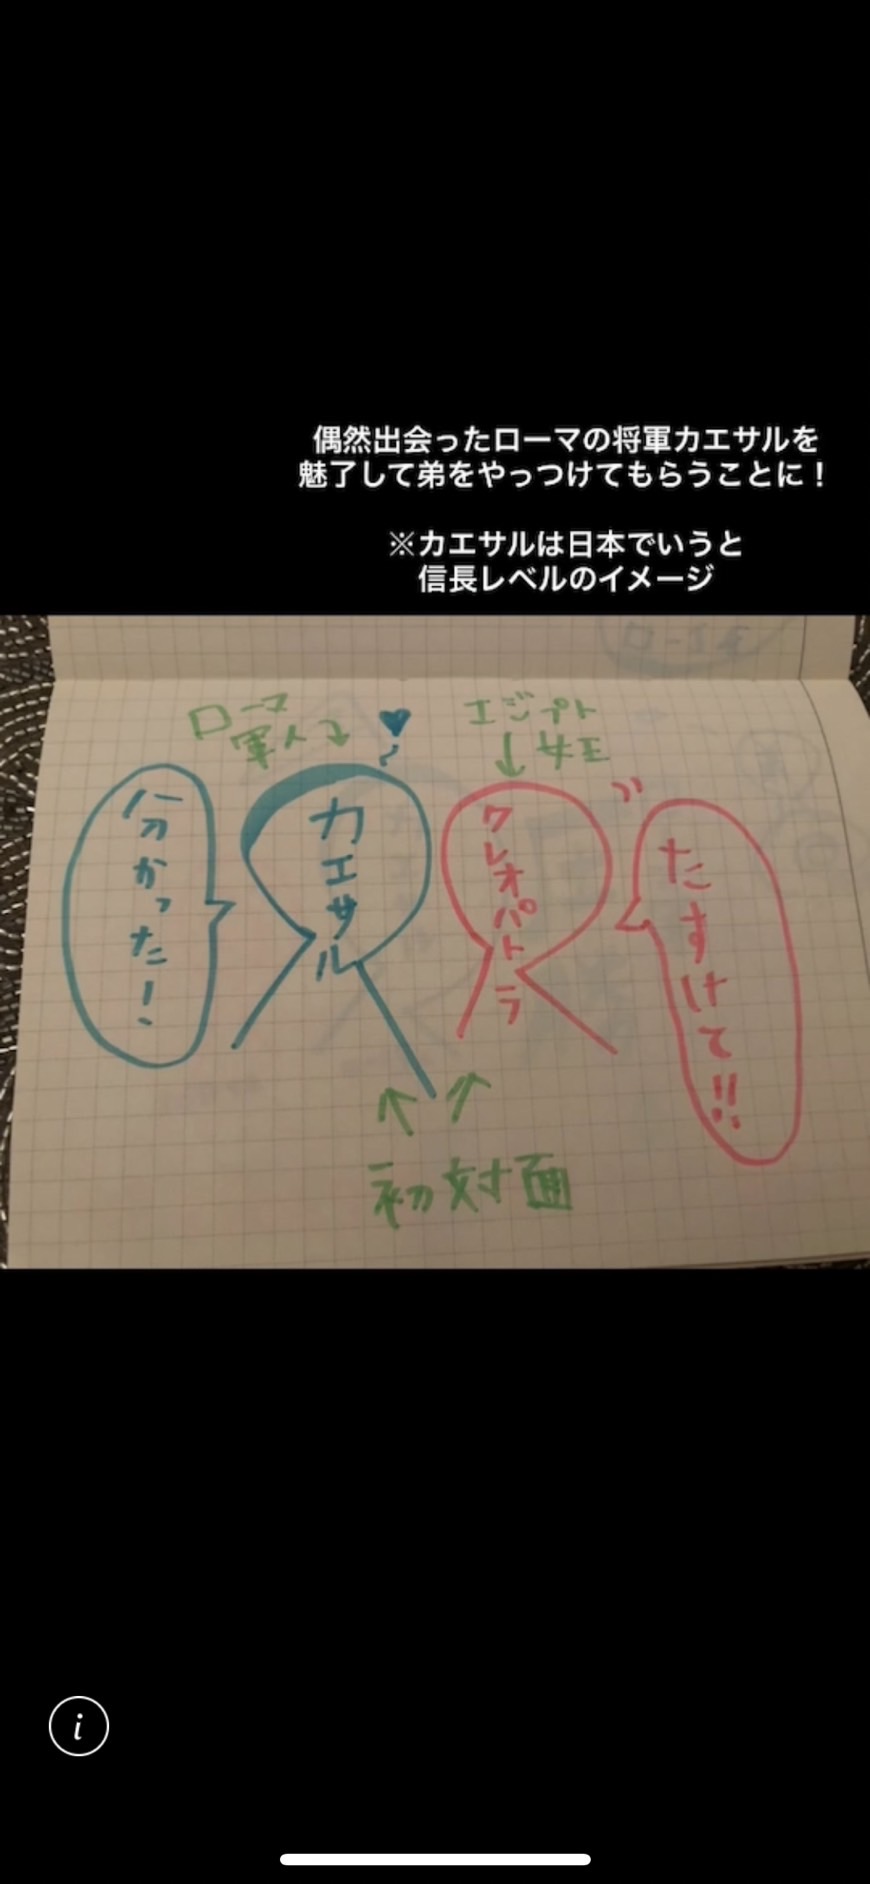 偶然出会ったローマの将軍カエサルを
魅了して弟をやっつけてもらうことに！
※カエサルは日本でいうと
信長レベルのイメージ
ローマ
軍人
エジプト
女王
たすけて!!
クレオパトラ
カエサル
分かった！
初対面
i